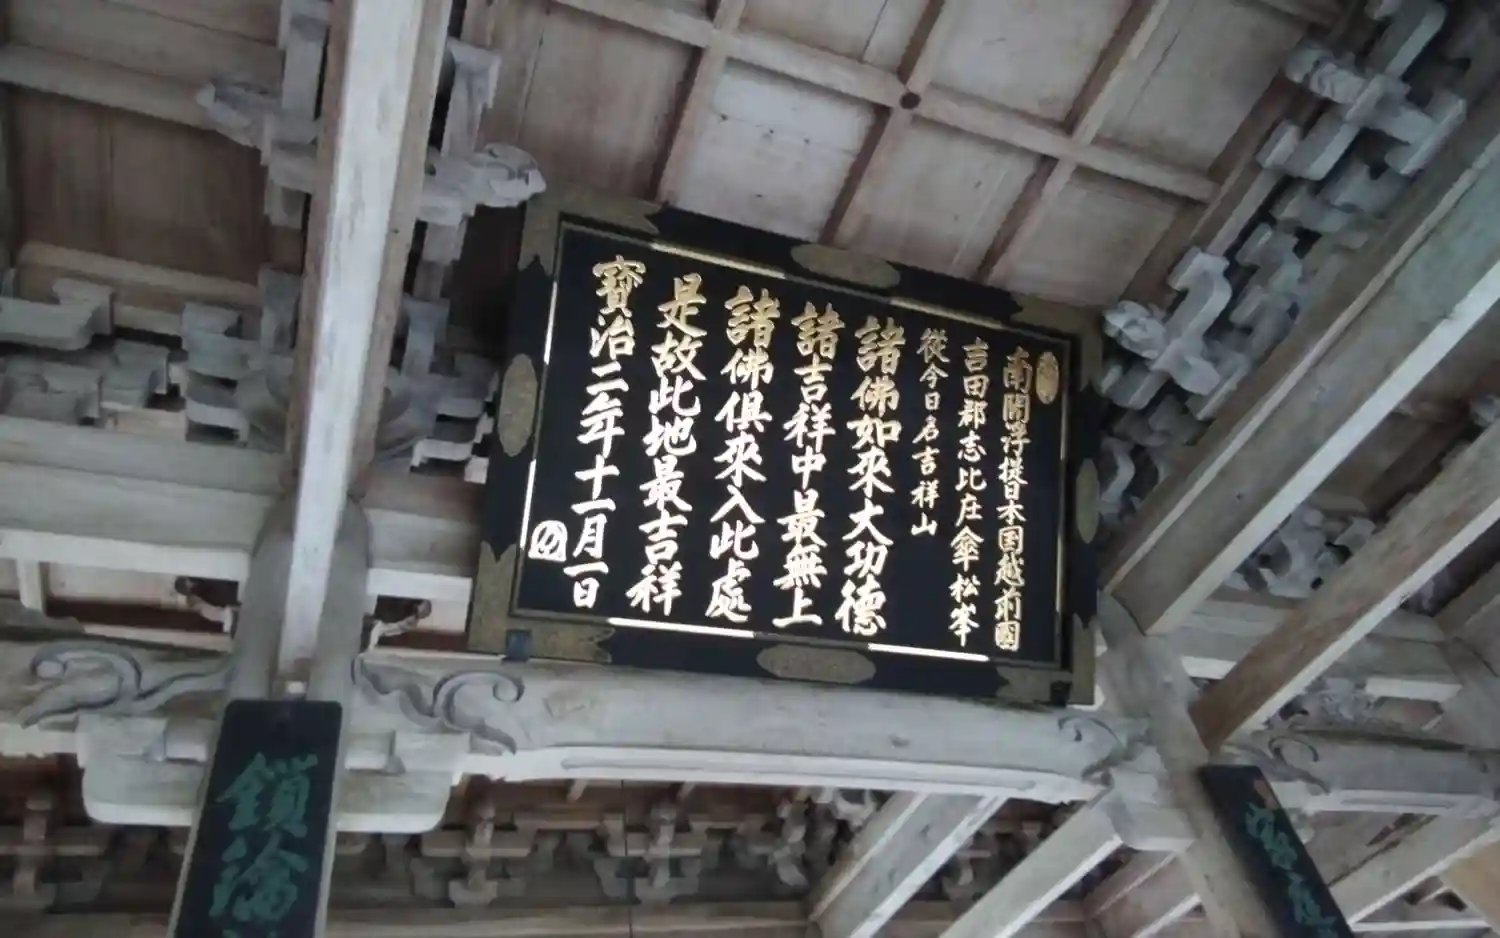 南閻浮提日本国越前國
吉田郡志比庄傘松峯
從今日名吉祥山
諸佛如來大功德
諸吉祥中最無上
諸佛俱來入此處
是故此地最吉祥
寶治二年十一月一日
鎖